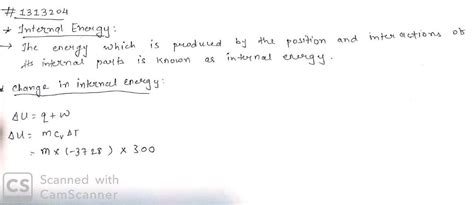 # 1313204
* Internal Energy:
→ The energy which is produced by the position and interactions of
its internal parts is known as internal energy.
* change in internal energy:
ΔU = q + w
ΔU = m cv ΔT
= m x (-3728) x 300
CS Scanned with
CamScanner